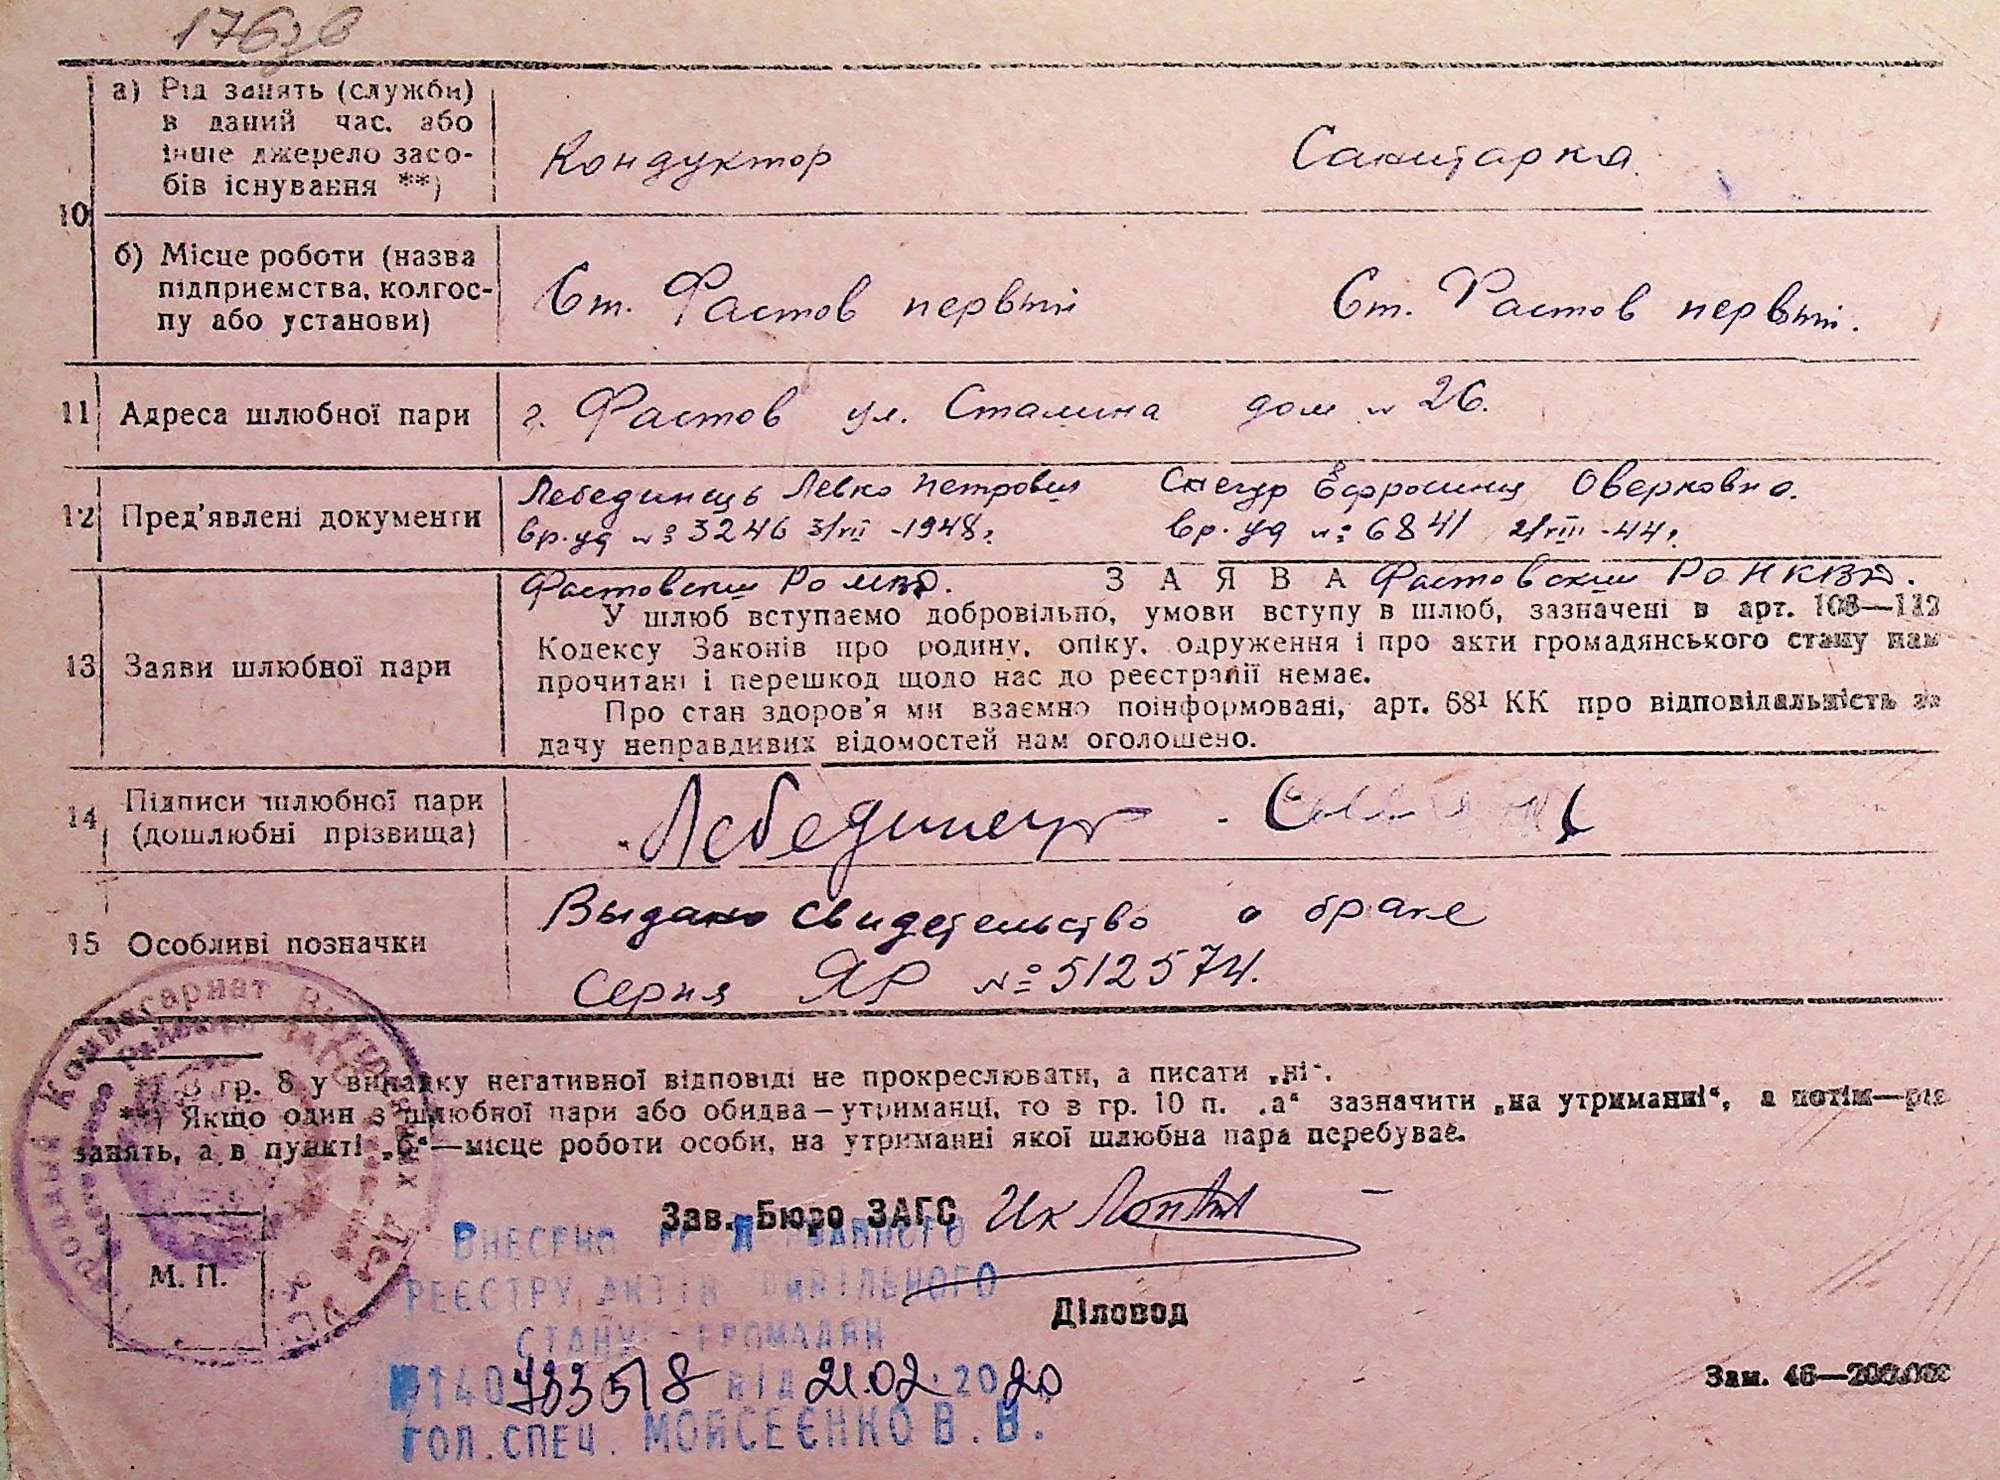 176зв
10
а) Рід занять (служби)
в даний час. або
інше джерело засо-
бів існування **)
Кондуктор
Санитарка.
б) Місце роботи (назва
підприємства, колгос-
пу або установи)
Ст. Фастов первый
Ст. Фастов первый.
11 Адреса шлюбної пари
г. Фастов ул. Сталина дом № 26.
12 Пред'явлені документи
Лебединець Левко Петрович Снегур Ефросинии Оверковна.
вр. уд № 3246 3/VII -1948г. вр. уд №: 6841 2/VIII -44г.
Фастовский РО МВД. ЗАЯВА Фастовский РО НКВД.
13 Заяви шлюбної пари
У шлюб вступаємо добровільно, умови вступу в шлюб, зазначені в арт. 108—112
Кодексу Законів про родину, опіку, одруження і про акти громадянського стану нам
прочитані і перешкод щодо нас до реєстрації немає.
Про стан здоров'я ми взаємно поінформовані, арт. 68¹ КК про відповідальність за
дачу неправдивих відомостей нам оголошено.
14 Підписи шлюбної пари
(дошлюбні прізвища)
Лебединец
15 Особливі позначки
Выдано свидетельство о браке
Серия ЯР № 512574.
*) В гр. 8 у випадку негативної відповіді не прокреслювати, а писати „ні“.
**) Якщо один з шлюбної пари або обидва—утриманці, то в гр. 10 п. „а“ зазначити „на утриманні“, а потім—рід
занять, а в пункті „б“—місце роботи особи, на утриманні якої шлюбна пара перебуває.
Зав. Бюро ЗАГС
М. П.
Діловод
Внесено до Державного
реєстру актів цивільного
стану громадян
№140733518 від 21.02.2020
гол.спец. Мойсеєнко В.В.
Зам. 46—200.000